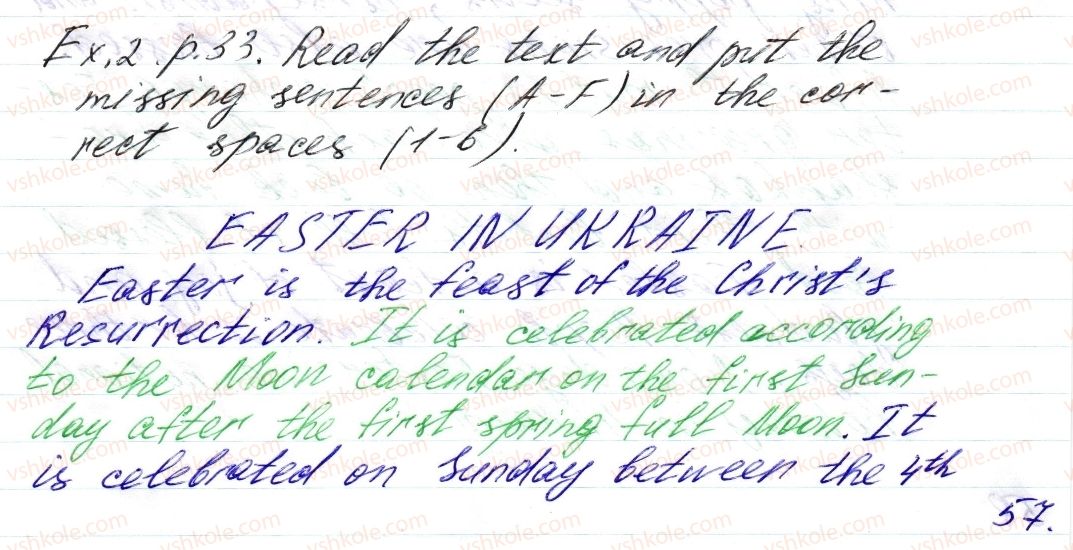 Ex.2.p.33. Read the text and put the
missing sentences (A-F) in the cor-
rect spaces (1-6).
EASTER IN UKRAINE.
Easter is the feast of the Christ's
Resurrection. It is celebrated according
to the Moon calendar on the first Sun-
day after the first spring full Moon. It
is celebrated on Sunday between the 4th
57.